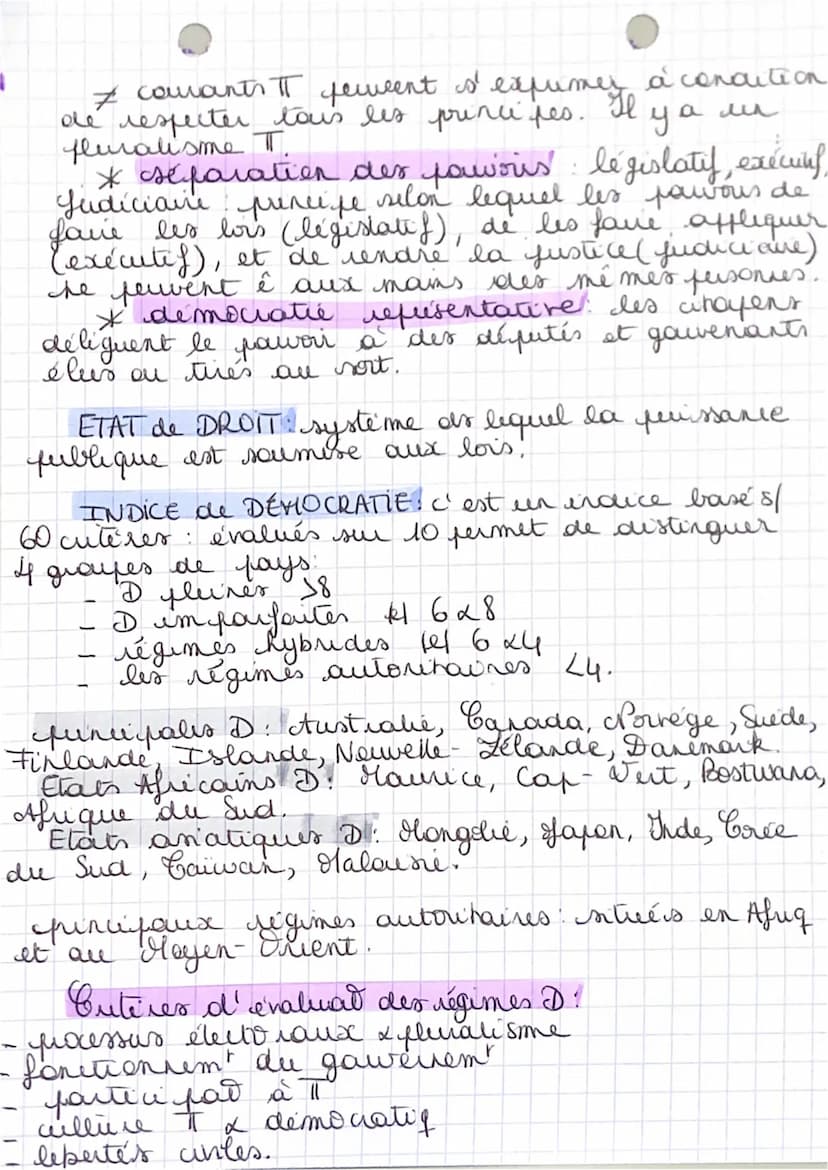 ≠ courants π peuvent s'exprimer à condition
de respecter tous les principes. Il y a un
pluralisme π.
* séparation des pouvoirs : législatif, exécutif,
judiciaire : principe selon lequel les pouvoirs de
faire les lois (législatif), de les faire appliquer
(exécutif), et de rendre la justice (judiciaire)
ne peuvent ê aux mains des mêmes personnes.
* démocratie représentative : les citoyens
délèguent le pouvoir à des députés et gouvenants
élus ou tirés au sort.
ETAT de DROIT : système ds lequel la puissance
publique est soumise aux lois.
INDICE de DÉMOCRATIE : c'est un indice basé s/
60 critères : évalués sur 10 permet de distinguer
4 groupes de pays :
- D pleines >8
- D imparfaites 6 α 8
- régimes hybrides 6 α 4
- les régimes autoritaires <4.
principales D : Australie, Canada, Norvège, Suède,
Finlande, Islande, Nouvelle-Zélande, Danemark.
Etats Africains D : Maurice, Cap-Vert, Bostwana,
Afrique du Sud.
Etats asiatiques D : Mongolie, Japon, Inde, Corée
du Sud, Taïwan, Malaisie.
principaux régimes autoritaires : situés en Afriq
et au Moyen-Orient.
Critères d'évaluat° des régimes D :
- processus électoraux α pluralisme
- fonctionnemt du gouvernemt
- participat° à π
- culture π α démocratiq
- libertés civiles.